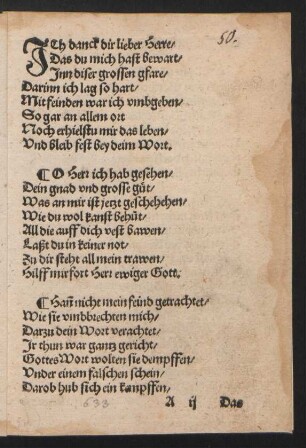 50.
ICh danck dir lieber Herre/
Das du mich hast bewart/
Jnn diser grossen gfare/
Darinn ich lag so hart/
Mit feinden war ich vmbgeben/
So gar an allem ort
Noch erhielstu mir das leben/
Vnd bleib fest bey deim Wort.
¶ O Herr ich hab gesehen/
Dein gnad vnd grosse güt/
Was an mir ist jetzt geschehehen/
Wie du wol kanst behüt/
All die auff dich vest bawen/
Laßt du in keiner not/
Zu dir steht all mein trawen/
Hilff mir fort Herr ewiger Gott.
¶ Han̄ nicht mein feind getrachtet/
Wie sie vmbbrechten mich/
Darzu dein Wort verachtet/
Jr thun war gantz gericht/
Gottes Wort wolten sie dempffen/
Vnder einem falschen schein/
Darob hub sich ein kampffen/
633 A ij Das